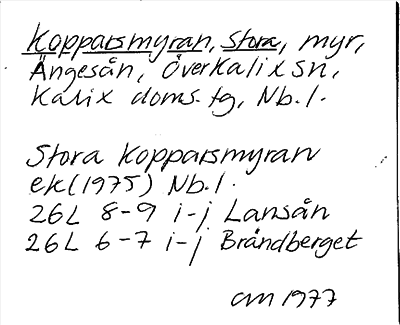 Kopparsmyran, Stora, myr,
Ängesån, Överkalix sn,
Kalix doms. tg, Nb. l.
Stora Kopparsmyran
ek (1975) Nb. l.
26L 8-9 i-j Lansån
26L 6-7 i-j Brändberget
am 1977